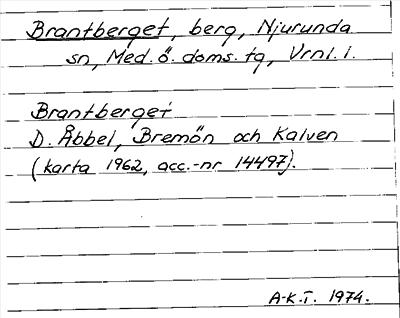 Brantberget, berg, Njurunda
sn, Med. ö. doms. tg, Vrnl. l.
Brantberget
D. Åbbel, Bremön och Kalven
(karta 1962, acc.-nr 14497).
A-K.T. 1974.